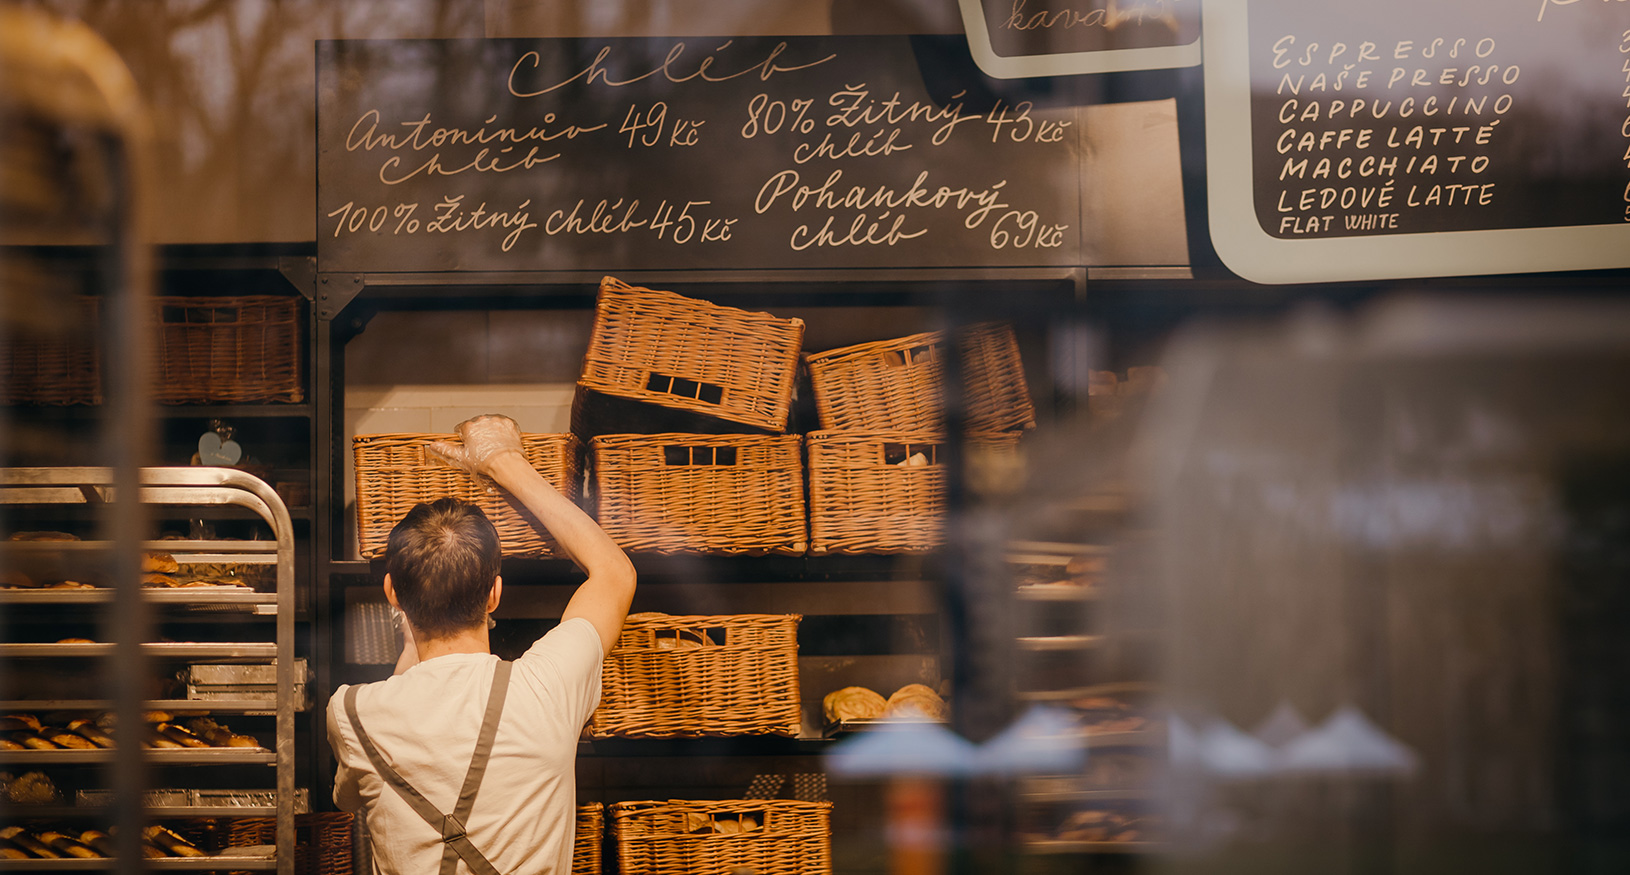 Chléb
Antonínův 49Kč
chléb
100% Žitný chléb 45Kč
80% Žitný 43Kč
chléb
Pohankový
chléb 69Kč
ESPRESSO
NAŠE PRESSO
CAPPUCCINO
CAFFE LATTÉ
MACCHIATO
LEDOVÉ LATTE
FLAT WHITE